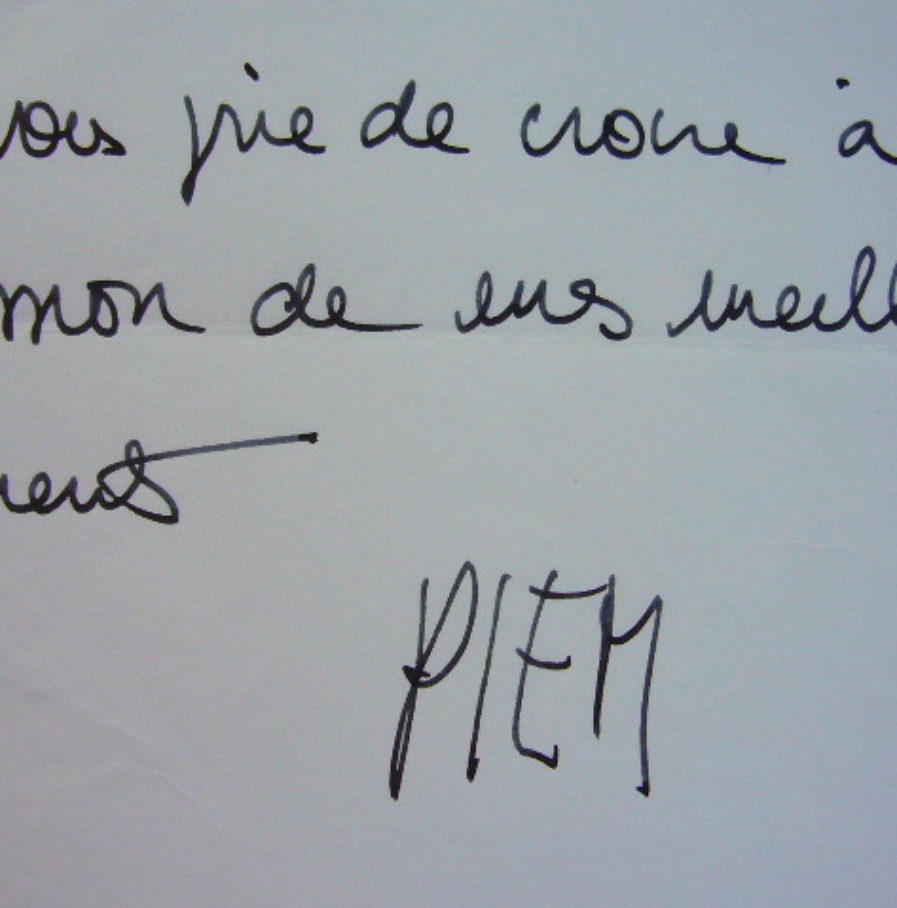 vous prie de croire à
mon de mes meill
ments
PIEM